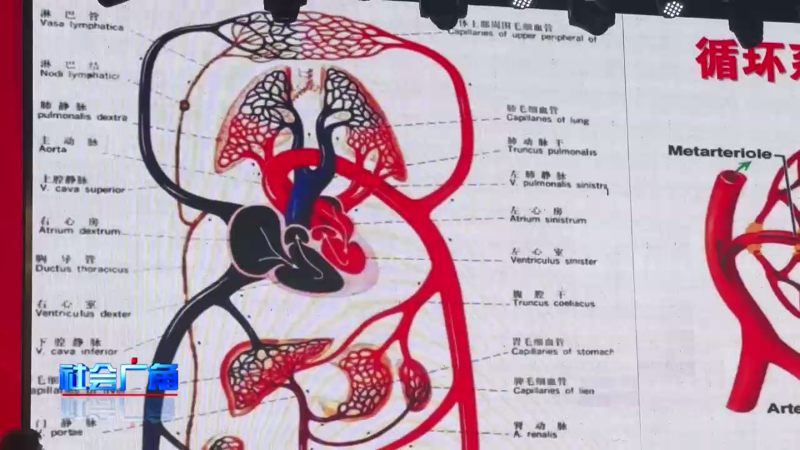 淋巴管
Vasa lymphatica
淋巴结
Nodi lymphatici
肺静脉
pulmonales dextra
主动脉
Aorta
上腔静脉
V. cava superior
右心房
Atrium dextrum
胸导管
Ductus thoracicus
右心室
Ventriculus dexter
下腔静脉
V. cava inferior
毛细血管
apillaries of liver
门静脉
V. portae
体上部周围毛细血管
Capillaries of upper peripheral of
肺毛细血管
Capillaries of lung
肺动脉干
Truncus pulmonalis
左肺静脉
V. pulmonalis sinistra
左心房
Atrium sinistrum
左心室
Ventriculus sinister
腹腔干
Truncus coeliacus
胃毛细血管
Capillaries of stomach
脾毛细血管
Capillaries of lien
肾动脉
A. renalis
循环系
Metarteriole
Arte
社会广角